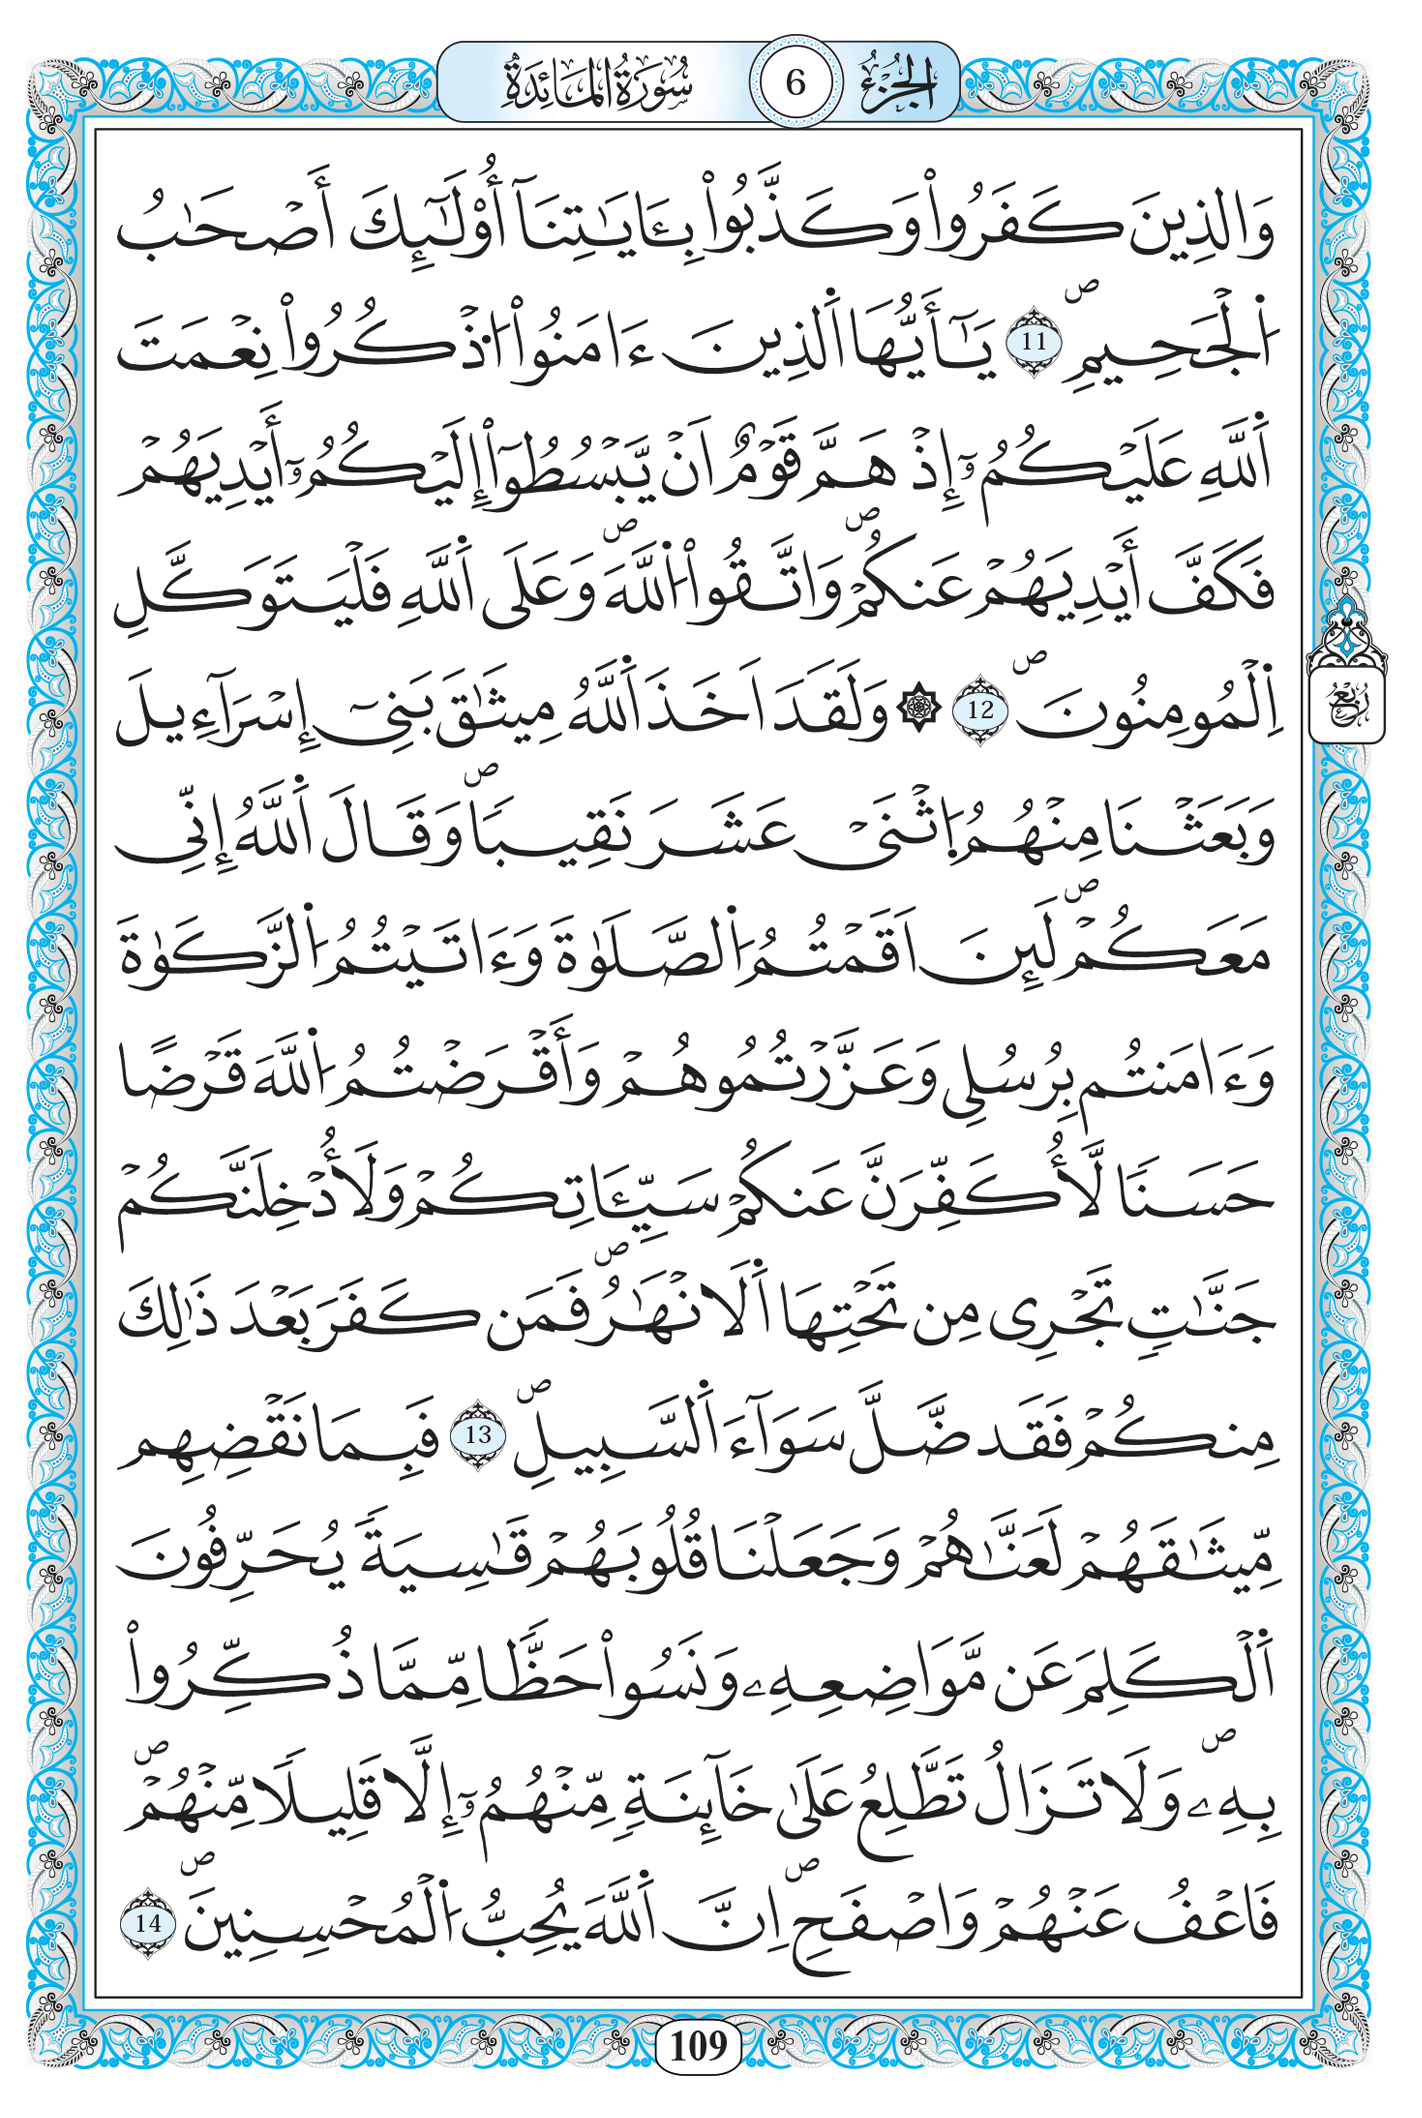 الجزء 6 سورة المائدة
وَالذِينَ كَفَرُواْ وَكَذَّبُواْ بِـَٔايَٰتِنَآ أُوْلَٰٓئِكَ أَصْحَٰبُ
اُ۬لْجَحِيمِۖ 11 يَٰٓأَيُّهَا اَ۬لذِينَ ءَامَنُواْ اُ۟ذْكُرُواْ نِعْمَتَ
اَ۬للَّهِ عَلَيْكُمُۥٓ إِذْ هَمَّ قَوْمٌ اَنْ يَّبْسُطُوٓاْ إِلَيْكُمُۥٓ أَيْدِيَهُمْ
فَكَفَّ أَيْدِيَهُمْ عَنكُمْۖ وَاتَّقُواْ اُ۬للَّهَۖ وَعَلَى اَ۬للَّهِ فَلْيَتَوَكَّلِ
اِ۬لْمُومِنُونَۖ 12 ۞ وَلَقَدَ اَخَذَ اَ۬للَّهُ مِيثَٰقَ بَنِےٓ إِسْرَآءِيلَ
وَبَعَثْنَا مِنْهُمُ اُ۪ثْنَےْ عَشَرَ نَقِيباٗۖ وَقَالَ اَ۬للَّهُ إِنِّے
مَعَكُمْۖ لَئِنَ اَقَمْتُمُ اُ۬لصَّلَوٰةَ وَءَاتَيْتُمُ اُ۬لزَّكَوٰةَ
وَءَامَنتُم بِرُسُلِي وَعَزَّرْتُمُوهُمْ وَأَقْرَضْتُمُ اُ۬للَّهَ قَرْضاً
حَسَناٗ لَّأُكَفِّرَنَّ عَنكُمْ سَيِّـَٔاتِكُمْ وَلَأُدْخِلَنَّكُمْ
جَنَّٰتٖ تَجْرِى مِن تَحْتِهَا اَ۬لَانْهَٰرُۖ فَمَن كَفَرَ بَعْدَ ذَٰلِكَ
مِنكُمْ فَقَد ضَّلَّ سَوَآءَ اَ۬لسَّبِيلِۖ 13 فَبِمَا نَقْضِهِم
مِّيثَٰقَهُمْ لَعَنَّٰهُمْ وَجَعَلْنَا قُلُوبَهُمْ قَٰسِيَةٗ يُحَرِّفُونَ
اَ۬لْكَلِمَ عَن مَّوَاضِعِهِۦ وَنَسُواْ حَظّاٗ مِّمَّا ذُكِّرُواْ
بِهِۦۖ وَلَا تَزَالُ تَطَّلِعُ عَلَىٰ خَآئِنَةٖ مِّنْهُمُۥٓ إِلَّا قَلِيلاٗ مِّنْهُمْۖ
فَاعْفُ عَنْهُمْ وَاصْفَحِۖ اِنَّ اَ۬للَّهَ يُحِبُّ اُ۬لْمُحْسِنِينَۖ 14
رُبُعْ
109